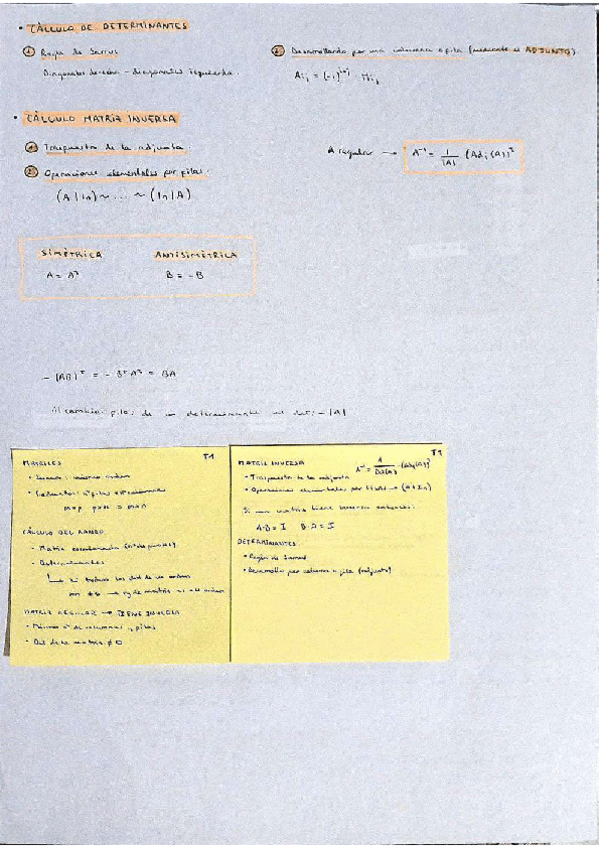 • CÁLCULO DE DETERMINANTES
① Regla de Sarrus
Diagonales derecha - diagonales izquierda.
② Desarrollando por una columna o fila (mediante el ADJUNTO)
Aij = (-1)^(i+j) Mij
• CÁLCULO MATRIZ INVERSA
① Traspuesta de la adjunta.
② Operaciones elementales por filas.
(A | In) ~ ... ~ (In | A)
A regular → A⁻¹ = 1/|A| (Adj(A))ᵗ
SIMÉTRICA ANTISIMÉTRICA
A = Aᵗ B = -B
- (AB)ᵗ = - Bᵗ Aᵗ = BA
Al cambiar filas de un determinante el det: - |A|
MATRICES T1
• Suma: mismo orden
• nº filas columnas
m×p p×n = m×n
CÁLCULO DEL RANGO
• Matriz escalonada (nº de pivotes)
• Determinantes
↳ si todos los det de un orden
→ rg de matriz
MATRIZ REGULAR → TIENE INVERSA
• Mismo nº de columnas y filas
• Det de la matriz ≠ 0
MATRIZ INVERSA T1
A⁻¹ = 1/Det(A) (Adj(A))ᵗ
• Traspuesta de la adjunta
• Operaciones elementales por filas → (A | In)
Si una matriz tiene inversa entonces:
A·B = I B·A = I
DETERMINANTES
• Regla de Sarrus
• Desarrollo por columna o fila (adjunto)